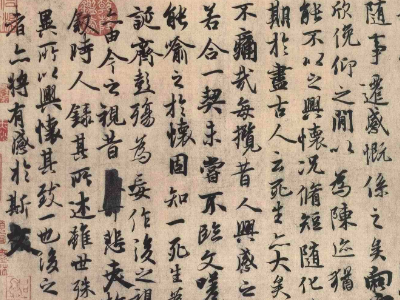 隨事遷感慨係之矣向
欣俛仰之閒以為陳迹猶
能不以之興懷況脩短隨化
期於盡古人云死生亦大矣
不痛哉每攬昔人興感之
若合一契未甞不臨文嗟
能喻之於懷固知一死生
誕齊彭殤為妄作後之視
亦由今之視昔悲夫
敘時人錄其所述雖世殊
異所以興懷其致一也後之
者亦將有感於斯文